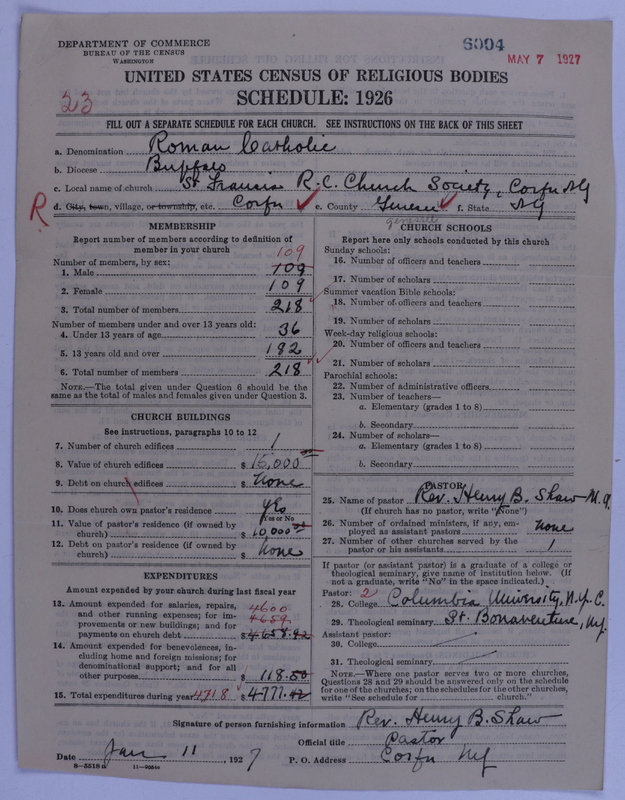 DEPARTMENT OF COMMERCE
BUREAU OF THE CENSUS
WASHINGTON
6094
MAY 7 1927
UNITED STATES CENSUS OF RELIGIOUS BODIES
SCHEDULE: 1926
23
FILL OUT A SEPARATE SCHEDULE FOR EACH CHURCH. SEE INSTRUCTIONS ON THE BACK OF THIS SHEET
a. Denomination Roman Catholic
b. Diocese Buffalo
c. Local name of church St Francis R.C. Church Society, Corfu NY
R d. City, town, village, or township, etc. Corfu e. County Genesee f. State NY
genesee
MEMBERSHIP
Report number of members according to definition of member in your church
Number of members, by sex: 109
1. Male 109
2. Female 109
3. Total number of members 218
Number of members under and over 13 years old:
4. Under 13 years of age 36
5. 13 years old and over 182
6. Total number of members 218
NOTE.—The total given under Question 6 should be the same as the total of males and females given under Question 3.
CHURCH BUILDINGS
See instructions, paragraphs 10 to 12
7. Number of church edifices 1
8. Value of church edifices $ 15,000 00
9. Debt on church edifices $ none
10. Does church own pastor's residence yes
Yes or No
11. Value of pastor's residence (if owned by church) $ 10,000 00
12. Debt on pastor's residence (if owned by church) $ none
EXPENDITURES
Amount expended by your church during last fiscal year
13. Amount expended for salaries, repairs, and other running expenses; for improvements or new buildings; and for payments on church debt 4600 4659 $ 4658.92
14. Amount expended for benevolences, including home and foreign missions; for denominational support; and for all other purposes $ 118.50
15. Total expenditures during year 4718 $ 4777.42
CHURCH SCHOOLS
Report here only schools conducted by this church
Sunday schools:
16. Number of officers and teachers
17. Number of scholars
Summer vacation Bible schools:
18. Number of officers and teachers
19. Number of scholars
Week-day religious schools:
20. Number of officers and teachers
21. Number of scholars
Parochial schools:
22. Number of administrative officers
23. Number of teachers—
a. Elementary (grades 1 to 8)
b. Secondary
24. Number of scholars—
a. Elementary (grades 1 to 8)
b. Secondary
PASTOR
25. Name of pastor Rev. Henry B. Shaw—M.A.
(If church has no pastor, write "None")
26. Number of ordained ministers, if any, employed as assistant pastors none
27. Number of other churches served by the pastor or his assistants 1
If pastor (or assistant pastor) is a graduate of a college or theological seminary, give name of institution below. (If not a graduate, write "No" in the space indicated.)
Pastor: 2
28. College Columbia University, N.Y.C.
29. Theological seminary St. Bonaventure, NY.
Assistant pastor:
30. College
31. Theological seminary
NOTE.—Where one pastor serves two or more churches, Questions 28 and 29 should be answered only on the schedule for one of the churches; on the schedules for the other churches, write "See schedule for church."
Signature of person furnishing information Rev. Henry B. Shaw
Official title Pastor
Date Jan 11, 1927 P. O. Address Corfu NY
8—5518 a 11—9054a